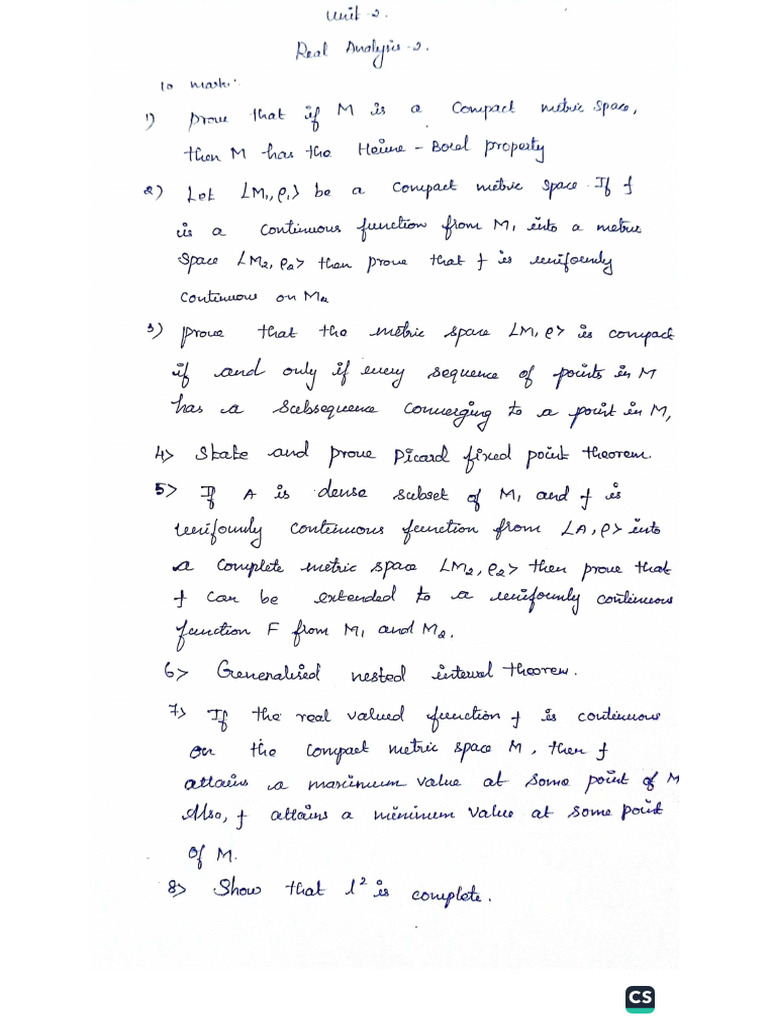 Unit-2.
Real Analysis-2.
10 mark:
1) prove that if M is a compact metric space,
then M has the Heine-Borel property
2) Let <M1, ρ1> be a compact metric space. If f
is a continuous function from M1 into a metric
space <M2, ρ2> then prove that f is uniformly
continuous on M2
3) prove that the metric space <M, ρ> is compact
if and only if every sequence of points in M
has a subsequence converging to a point in M,
4> State and prove Picard fixed point theorem.
5> If A is dense subset of M1 and f is
uniformly continuous function from <A, ρ> into
a complete metric space <M2, ρ2> then prove that
f can be extended to a uniformly continuous
function F from M1 and M2.
6> Generalised nested interval theorem.
7> If the real valued function f is continuous
on the compact metric space M, then f
attains a maximum value at some point of M
Also, f attains a minimum value at some point
of M.
8> Show that l² is complete.
CS